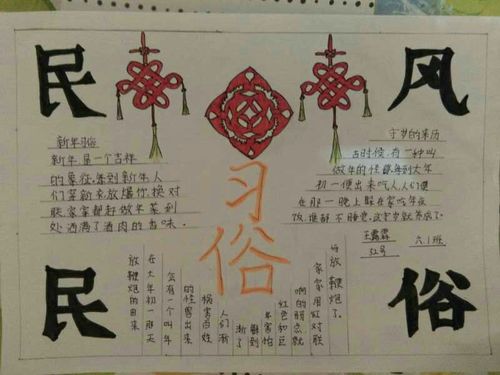 民
风
民
俗
习
俗
新年习俗
新年是一个吉祥
的象征,每到新年人
们等新衣放爆竹,换对
联,家家都赶做年菜到
处洒满了酒肉的香味。
守岁的来历
古时候,有一种叫
做年的怪兽,每到大年
初一便出来吃人,人们便
在那一晚上躲在家吃年夜
饭,
王露霖
六.1班
放鞭炮的由来
在大年初一那天
会有一个叫年
的怪兽出来
祸害百姓
人们渐
渐了
年害怕
红色和巨
响的弱点就
家家用红对联
与放鞭炮了。